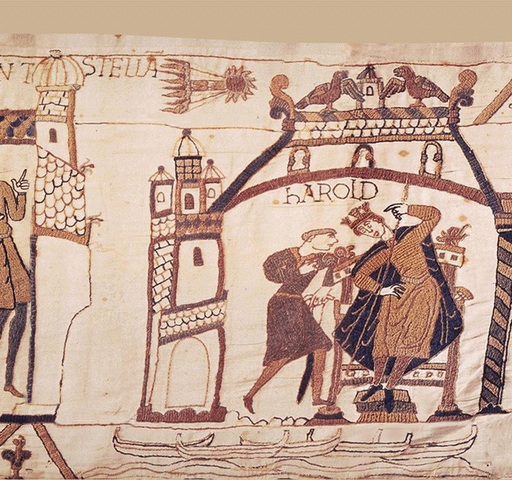 NT STELLĀ
hAROLD